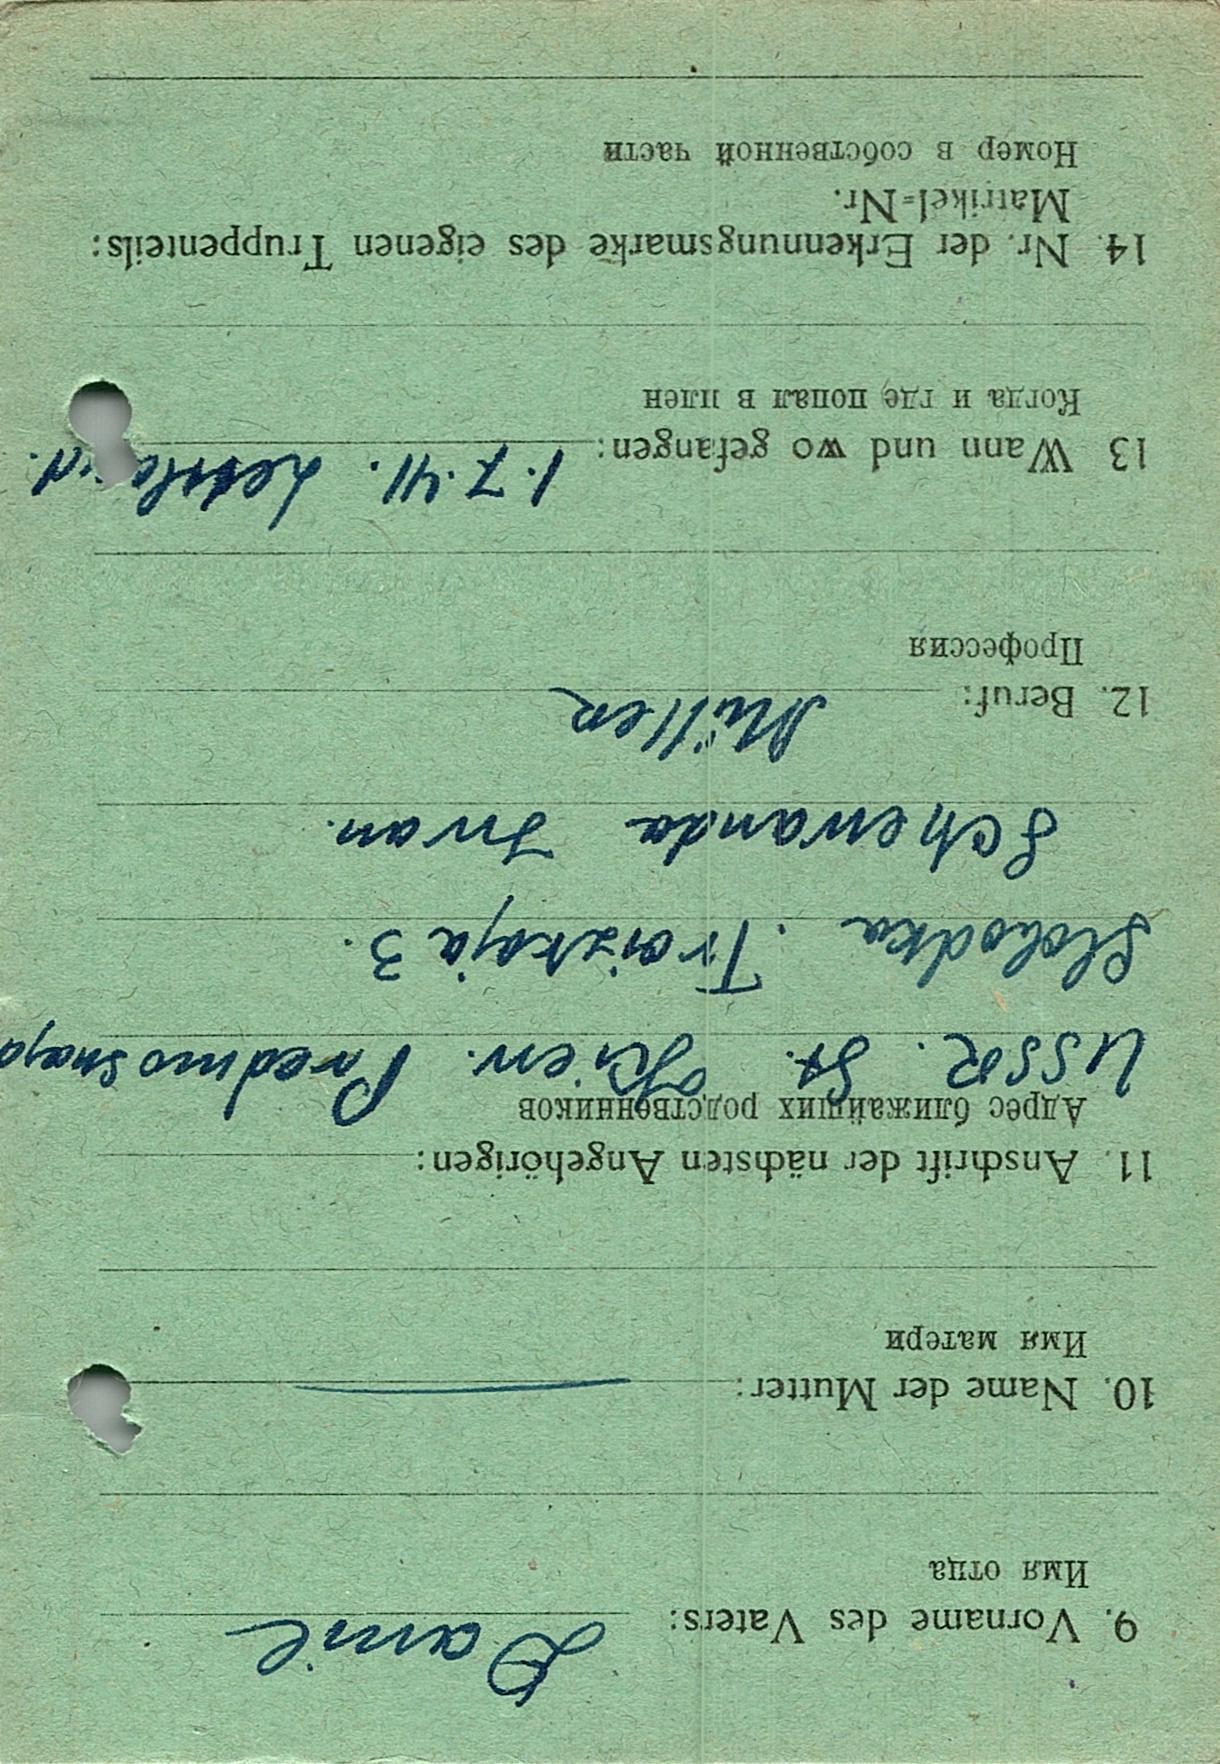 9. Vorname des Vaters: Danil
Имя отца
10. Name der Mutter:
Имя матери
11. Anschrift der nächsten Angehörigen:
Адрес ближайших родственников
USSR. St. Kiew. Predmosnaja
Slobodka. Troizkaja 3.
Schewanda Iwan.
12. Beruf: Müller
Профессия
13 Wann und wo gefangen: 1.7.41. Lettland.
Когда и где попал в плен
14. Nr. der Erkennungsmarke des eigenen Truppenteils:
Matrikel-Nr.
Номер в собственной части